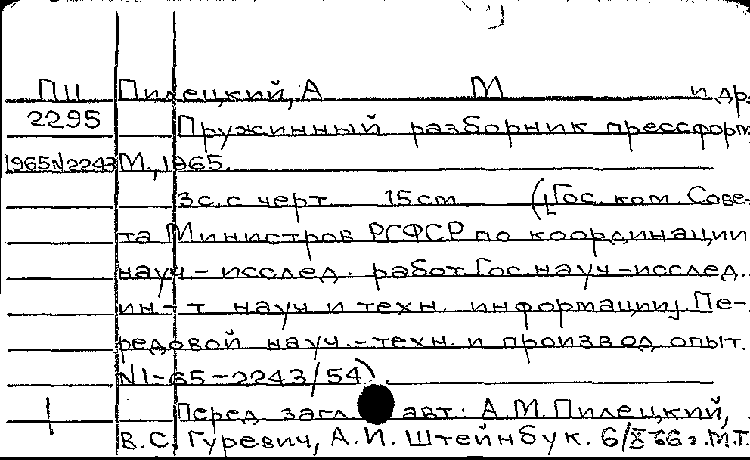 ПII Пилецкий, А М и др.
2295 Пружинный разборник прессформ
1965N2243 М., 1965.
3с. с черт 15cm ([Гос. ком. Сове-
та Министров РСФСР по координации
науч-исслед. работ. Гос. науч-исслед.
ин-т науч и техн. информации]. Пе-
редовой науч.-техн. и производ. опыт.
N1-65-2243/54).
Перед загл. авт: А.М. Пилецкий,
В.С. Гуревич, А.И. Штейнбук. 6/X 66г. М.Т.